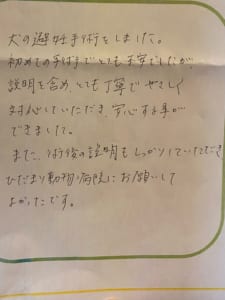 犬の避妊手術をしました。
初めての手術でとても不安でしたが、
説明を含め、とても丁寧でやさしく
対応していただき、安心する事が
できました。
また、術後の説明もしっかりしていただき
ひだまり動物病院にお願いして
よかったです。